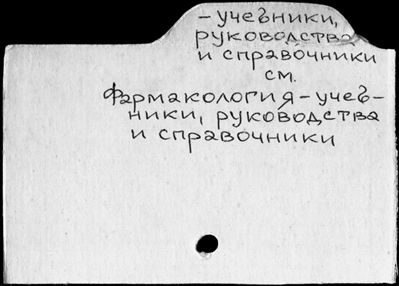 - учебники,
руководства
и справочники
см.
Фармакология - учеб-
ники, руководства
и справочники